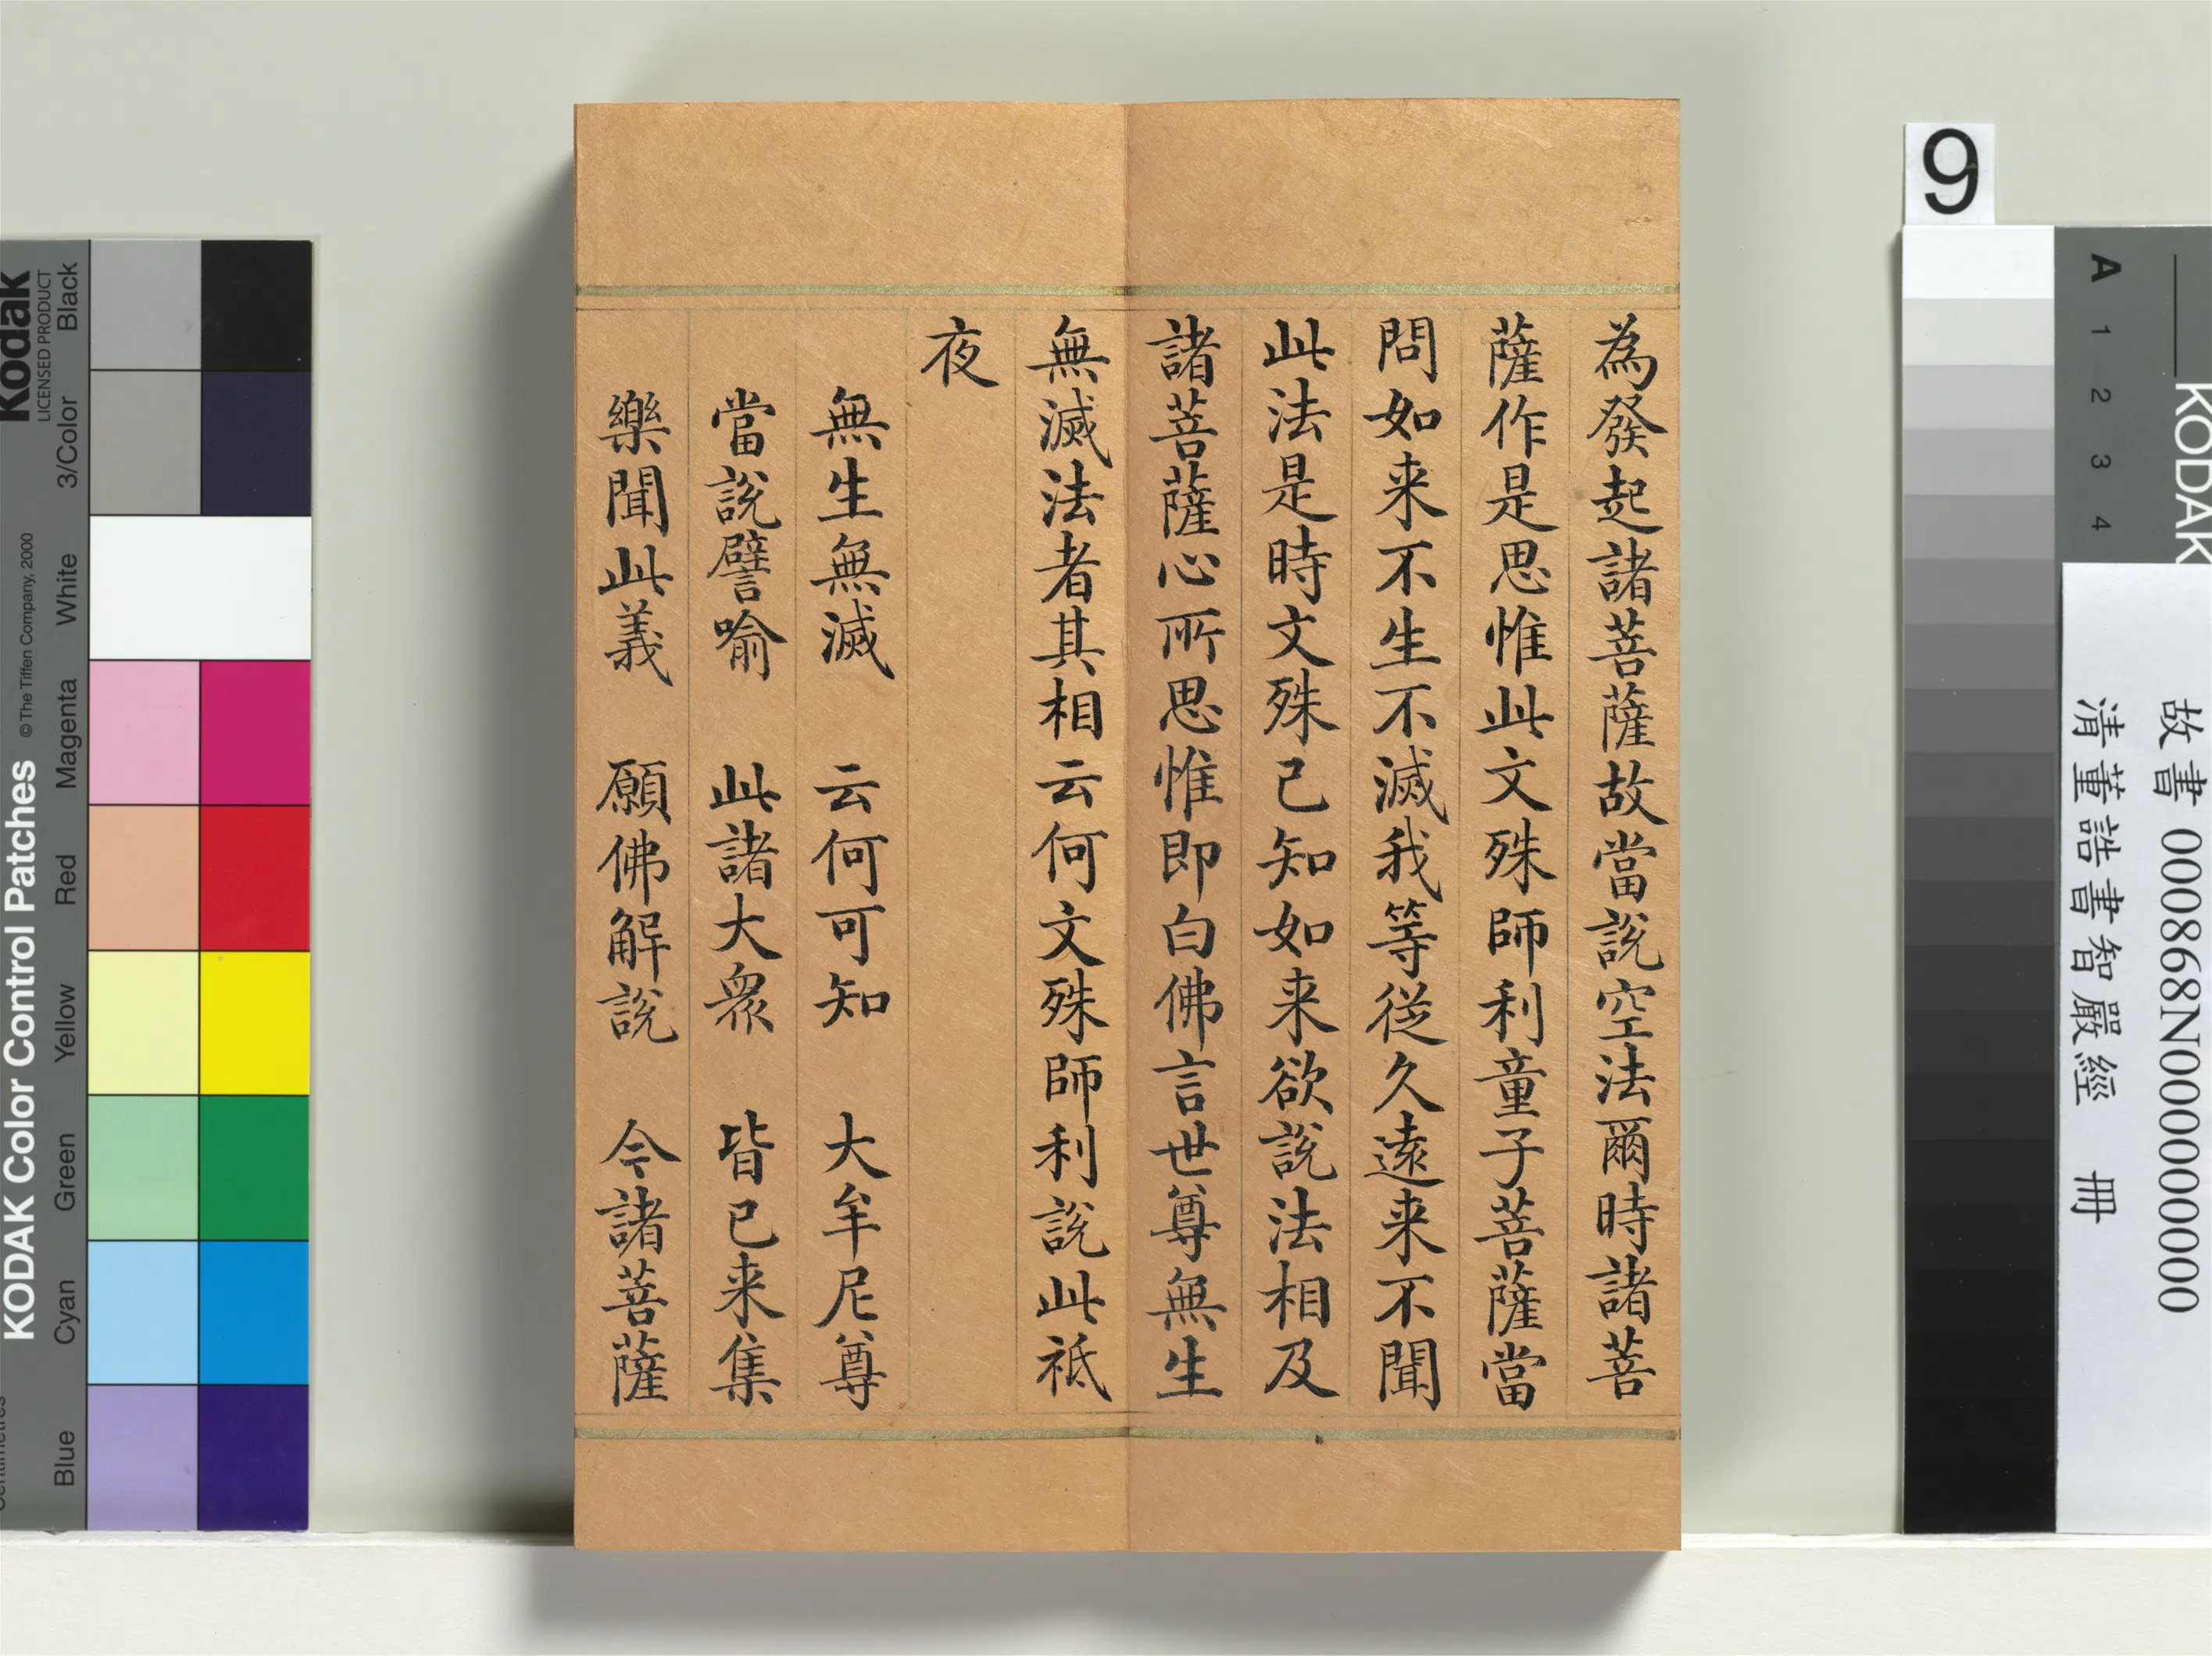 為發起諸菩薩故當說空法爾時諸菩
薩作是思惟此文殊師利童子菩薩當
問如来不生不滅我等從久遠来不聞
此法是時文殊已知如来欲說法相及
諸菩薩心所思惟即白佛言世尊無生
無滅法者其相云何文殊師利說此祇
夜
無生無滅　云何可知　大牟尼尊
當說譬喻　此諸大眾　皆已来集
樂聞此義　願佛解說　今諸菩薩
Kodak
LICENSED PRODUCT
Black
3/Color
White
Magenta
Red
Yellow
Green
Cyan
Blue
KODAK Color Control Patches
© The Tiffen Company, 2000
9
A 1 2 3 4
KODAK
故書 000868N000000000
清董誥書智嚴經　冊